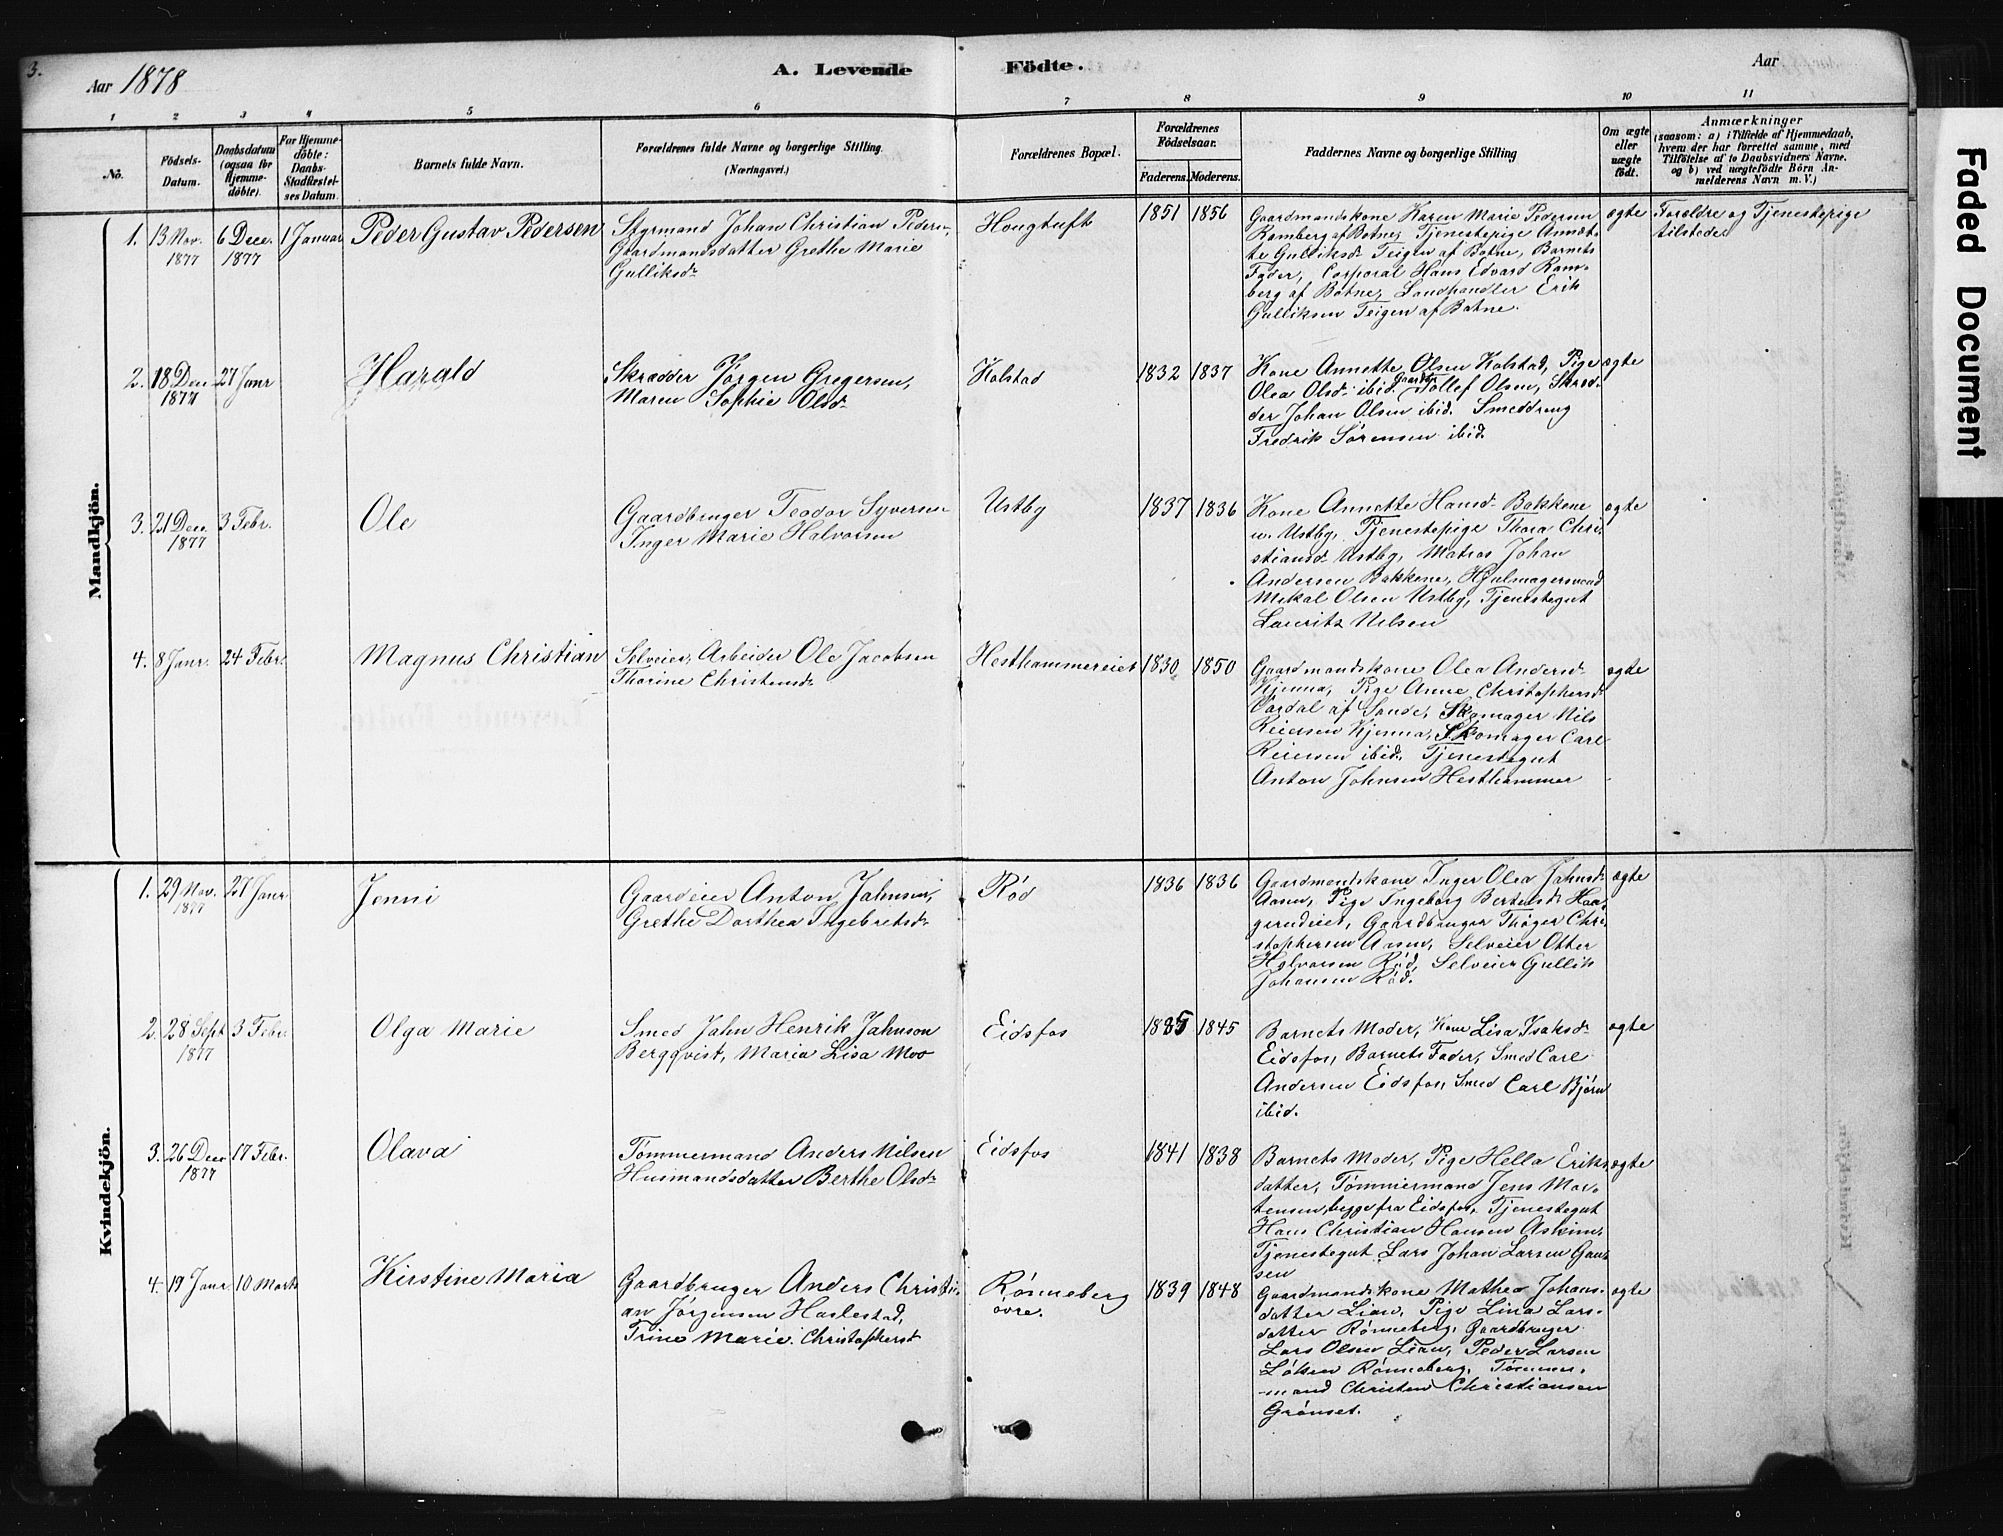 3.
Aar 1878
A. Levende Födte.
Aar
1 2 3 4 5 6 7 8 9 10 11
No.
Födsels-Datum.
Daabsdatum (ogsaa for Hjemme-döbte).
For Hjemme-döbte: Daabs-Stadfæstel-ses Datum.
Barnets fulde Navn.
Forældrenes fulde Navne og borgerlige Stilling (Næringsvei.)
Forældrenes Bopæl.
Forældrenes Födselsaar.
Faderens. Moderens.
Faddernes Navne og borgerlige Stilling
Om ægte eller uægte födt.
Anmærkninger
(saasom: a) i Tilfælde af Hjemmedaab,
hvem der har forrettet samme, med
Tilföielse af to Daabsvidners Navne.
og b) ved uægtefödte Börn An-
melderens Navn m. V.)
Mandkjön.
1. 13 Nov. 1877
6 Dece. 1877
1 Januar
Peder Gustav Pedersen
Styrmand Johan Christian Peders.,
Gaardmandsdatter Grethe Marie
Gulliksdr
Hougtuft
1851 1856
Gaardmandskone Karen Marie Pedersen
Ramberg af Botne, Tjenestepige Annet-
te Gulliksdr Teigen af Botne, Barnets
Fader, Corporal Hans Edvard Ram-
berg af Botne, Landhandler Erik
Gulliksen Teigen af Botne.
ægte
Forældre og Tjenestepige
tilstede.
2. 18 Dec 1877
27 Janr
Harald
Skrædder Jørgen Gregersen,
Maren Sophie Olsdr
Kolstad
1832 1837
Kone Annette Olsen Kolstad, Pige
Olea Olsdr ibid. Gaardbr. Tollef Olsen, Skræd-
der Johan Olsen ibid. Smeddreng
Fredrik Sørensen ibid.
ægte
3. 21 Dec. 1877
3 Febr.
Ole
Gaardbruger Teodor Syversen
Inger Marie Halvorsen
Ustby
1837 1836
Kone Annette Hansd. Bakkene
u. Ustby, Tjenestepige Thora Chri-
stiansdr Ustby, Matros Johan
Andersen Bakkene, Hjulmagersvend
Mikal Olsen Ustby, Tjenestegut
Lauritz Nilsen
ægte
4. 8 Janr.
24 Febr.
Magnus Christian
Selveier, Arbeider Ole Jacobsen
Thorine Christensdr
Hesthammereiet
1830 1850
Gaardmandskone Olea Andersd.
Kjenna, Pige Anne Christophersdr
Vardal af Sande, Skomager Nils
Reiersen Kjenna, Skomager Carl
Reiersen ibid. Tjenestegut
Anton Johnsen Hesthammer
ægte
Kvindekjön.
1. 29 Nov. 1877
27 Janr
Jenni
Gaardeier Anton Jahnsen,
Grethe Dorthea Ingebretsdr
Rød
1836 1836
Gaardmandskone Inger Olea Jahnsdr
Aasen, Pige Ingeborg Berntsdr Haa-
gerudeiet, Gaardbruger Thøger Chri-
stophersen Aasen, Selveier Otter
Halvorsen Rød, Selveier Gullik
Johansen Rød.
ægte
2. 28 Sept 1877
3 Febr.
Olga Marie
Smed Jahn Henrik Jahnson
Bergqvist, Maria Lisa Moo
Eidsfos
1835 1845
Barnets Moder, Kone Lisa Isaksdr
Eidsfos, Barnets Fader, Smed Carl
Andersen Eidsfos, Smed Carl Bjørn
ibid.
ægte
3. 26 Dec 1877
17 Febr.
Olava
Tømmermand Anders Nilsen
Husmandsdatter Berthe Olsdr
Eidsfos
1841 1838
Barnets Moder, Pige Hella Eriks-
datter, Tømmermand Jens Mor-
tensen, begge fra Eidsfos, Tjenestegut
Hans Christian Hansen Askim,
Tjenestegut Lars Johan Larsen Gau-
sen
ægte
4. 19 Janr
10 Marts
Kirstine Maria
Gaardbruger Anders Christi-
an Jørgensen Haslestad,
Trine Marie Christophersdr
Rønneberg
øvre.
1839 1848
Gaardmandskone Mathea Johans-
datter Lian, Pige Lina Lars-
datter Rønneberg, Gaardbruger
Lars Olsen Lian, Peder Larsen
Løken Rønneberg, Tømmer-
mand Christen Christiansen
Grønset.
ægte
Faded Document